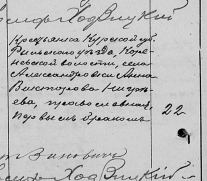 Ходвицкій
Крестьянка Курской губ.
Рыльскаго уѣзда, Коре-
невской волости, села
Александровки Анна
Викторова
ева, православная,
первымъ бракомъ
22
Зиновьевъ
Ходвицкій